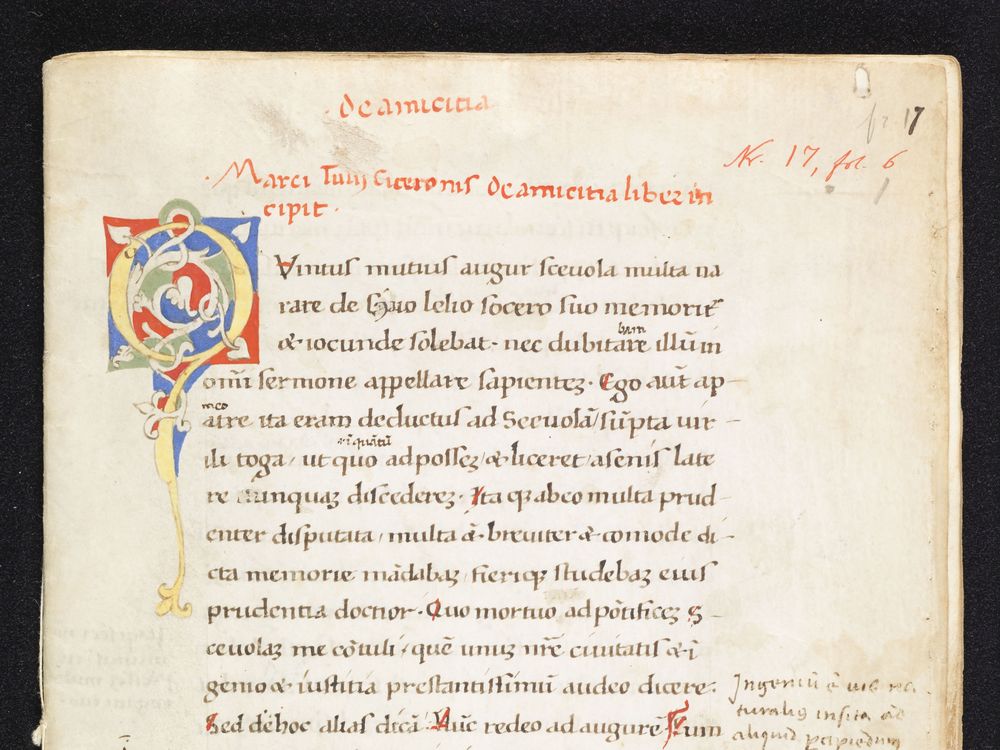 De amicitia
17
Nr. 17, fol. 6
Marci Tulij Ciceronis De amicitia liber in
cipit.
QVintus mutius augur sceuola multa na
rare de Caio lelio socero suo memoriter
& iocunde solebat. nec dubitare illũ in
bam
omi sermone appellare sapienteꝫ. Ego aũt ap-
meo
atre ita eram deductus ad Sceuolã/ sũpta uir-
ili toga/ ut quo ad posseꝫ/ & liceret/ a senis late
re nunquaꝫ discedereꝫ. Ita qꝫ ab eo multa prud-
enter disputata/ multa &. breuiter & comode di-
cta memorie mãdabaꝫ/ fieriqꝫ studebaꝫ eius
prudentia doctior. Quo mortuo ad põtificeꝫ S-
ceuolaꝫ me cõtuli/ quẽ unuꝫ nr̃e ciuitatis & ĩ
genio & iustitia prestantissimũ audeo dicere.
Sed de hoc alias dicã. Nũc redeo ad augurẽ. Tum
Ingeniũ ẽ uis na
turalis insita ad
aliquid